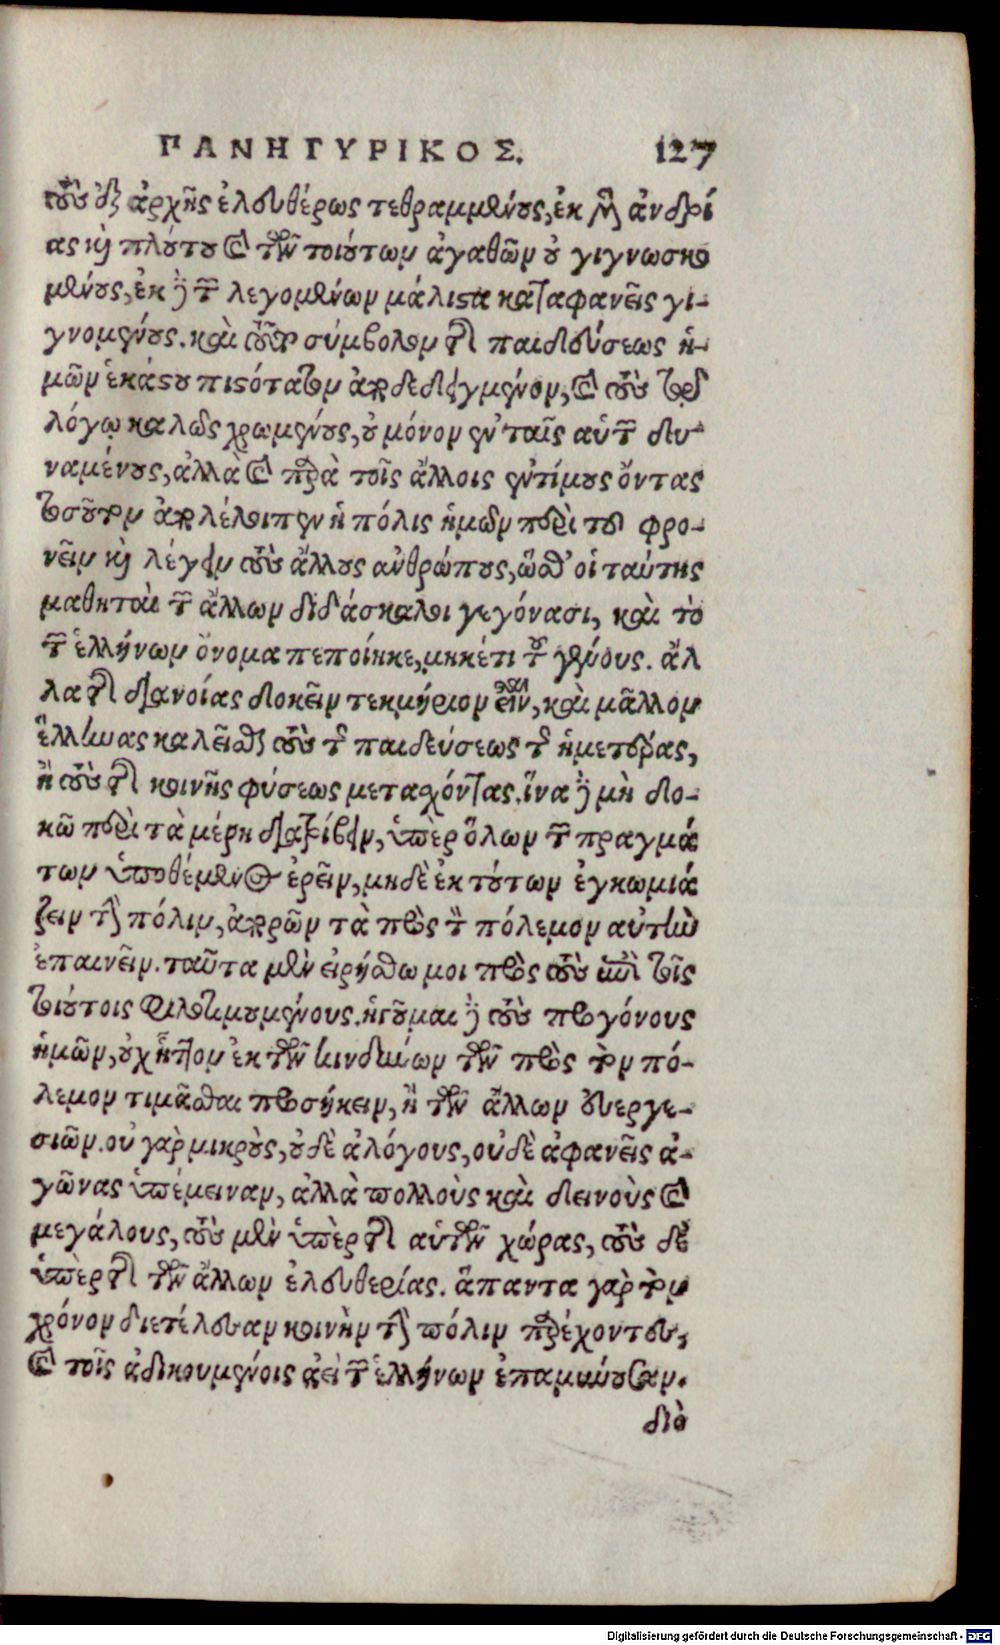 ΠΑΝΗΓΥΡΙΚΟΣ. 127
τοὺς ἐξ ἀρχῆς ἐλευθέρως τεθραμμένους, ἐκ μὲν ἀνδρί
ας καὶ πλούτου καὶ τῶν τοιούτων ἀγαθῶν οὐ γιγνωσκο
μένους, ἐκ δὲ τῶν λεγομένων μάλιστα καταφανεῖς γι-
γνομένους. καὶ τοῦτο σύμβολον τῆς παιδεύσεως ἡ-
μῶν ἑκάστου πιστότατον ἀποδεδειγμένον, καὶ τοὺς τῷ
λόγῳ καλῶς χρωμένους, οὐ μόνον ἐν ταῖς αὑτῶν δυ-
ναμένους, ἀλλὰ καὶ παρὰ τοῖς ἄλλοις ἐντίμους ὄντας
τοσοῦτον ἀπολέλοιπεν ἡ πόλις ἡμῶν περὶ τοῦ φρο-
νεῖν καὶ λέγειν τοὺς ἄλλους ἀνθρώπους, ὥσθ' οἱ ταύτης
μαθηταὶ τῶν ἄλλων διδάσκαλοι γεγόνασι, καὶ τὸ
τῶν ἑλλήνων ὄνομα πεποίηκε, μηκέτι τοῦ γένους. ἀλ
λὰ τῆς διανοίας δοκεῖν τεκμήριον εἶναι, καὶ μᾶλλον
ἕλληνας καλεῖσθαι τοὺς τῆς παιδεύσεως τῆς ἡμετέρας,
ἢ τοὺς τῆς κοινῆς φύσεως μετασχόντας. ἵνα δὲ μὴ δο-
κῶ περὶ τὰ μέρη διατρίβειν, ὑπὲρ ὅλων τῶν πραγμά
των ὑποθέμενος ἐρεῖν, μηδὲ ἐκ τούτων ἐγκωμιά
ζειν τὴν πόλιν, ἀπορῶν τὰ πρὸς τὸν πόλεμον αὐτὴν
ἐπαινεῖν. ταῦτα μὲν εἰρήσθω μοι πρὸς τοὺς ἐπὶ τοῖς
τοιούτοις φιλοτιμουμένους. ἡγοῦμαι δὲ τοὺς προγόνους
ἡμῶν, οὐχ ἧττον ἐκ τῶν κινδύνων τῶν πρὸς τὸν πό-
λεμον τιμᾶσθαι προσήκειν, ἢ τῶν ἄλλων εὐεργε-
σιῶν. οὐ γὰρ μικροὺς, οὐδὲ ἀλόγους, οὐδὲ ἀφανεῖς ἀ-
γῶνας ὑπέμειναν, ἀλλὰ πολλοὺς καὶ δεινοὺς καὶ
μεγάλους, τοὺς μὲν ὑπὲρ τῆς αὑτῶν χώρας, τοὺς δὲ
ὑπὲρ τῆς τῶν ἄλλων ἐλευθερίας. ἅπαντα γὰρ τὸν
χρόνον διετέλεσαν κοινὴν τὴν πόλιν παρέχοντες,
καὶ τοῖς ἀδικουμένοις ἀεὶ τῶν ἑλλήνων ἐπαμύνουσαν.
διὸ
Digitalisierung gefördert durch die Deutsche Forschungsgemeinschaft - DFG